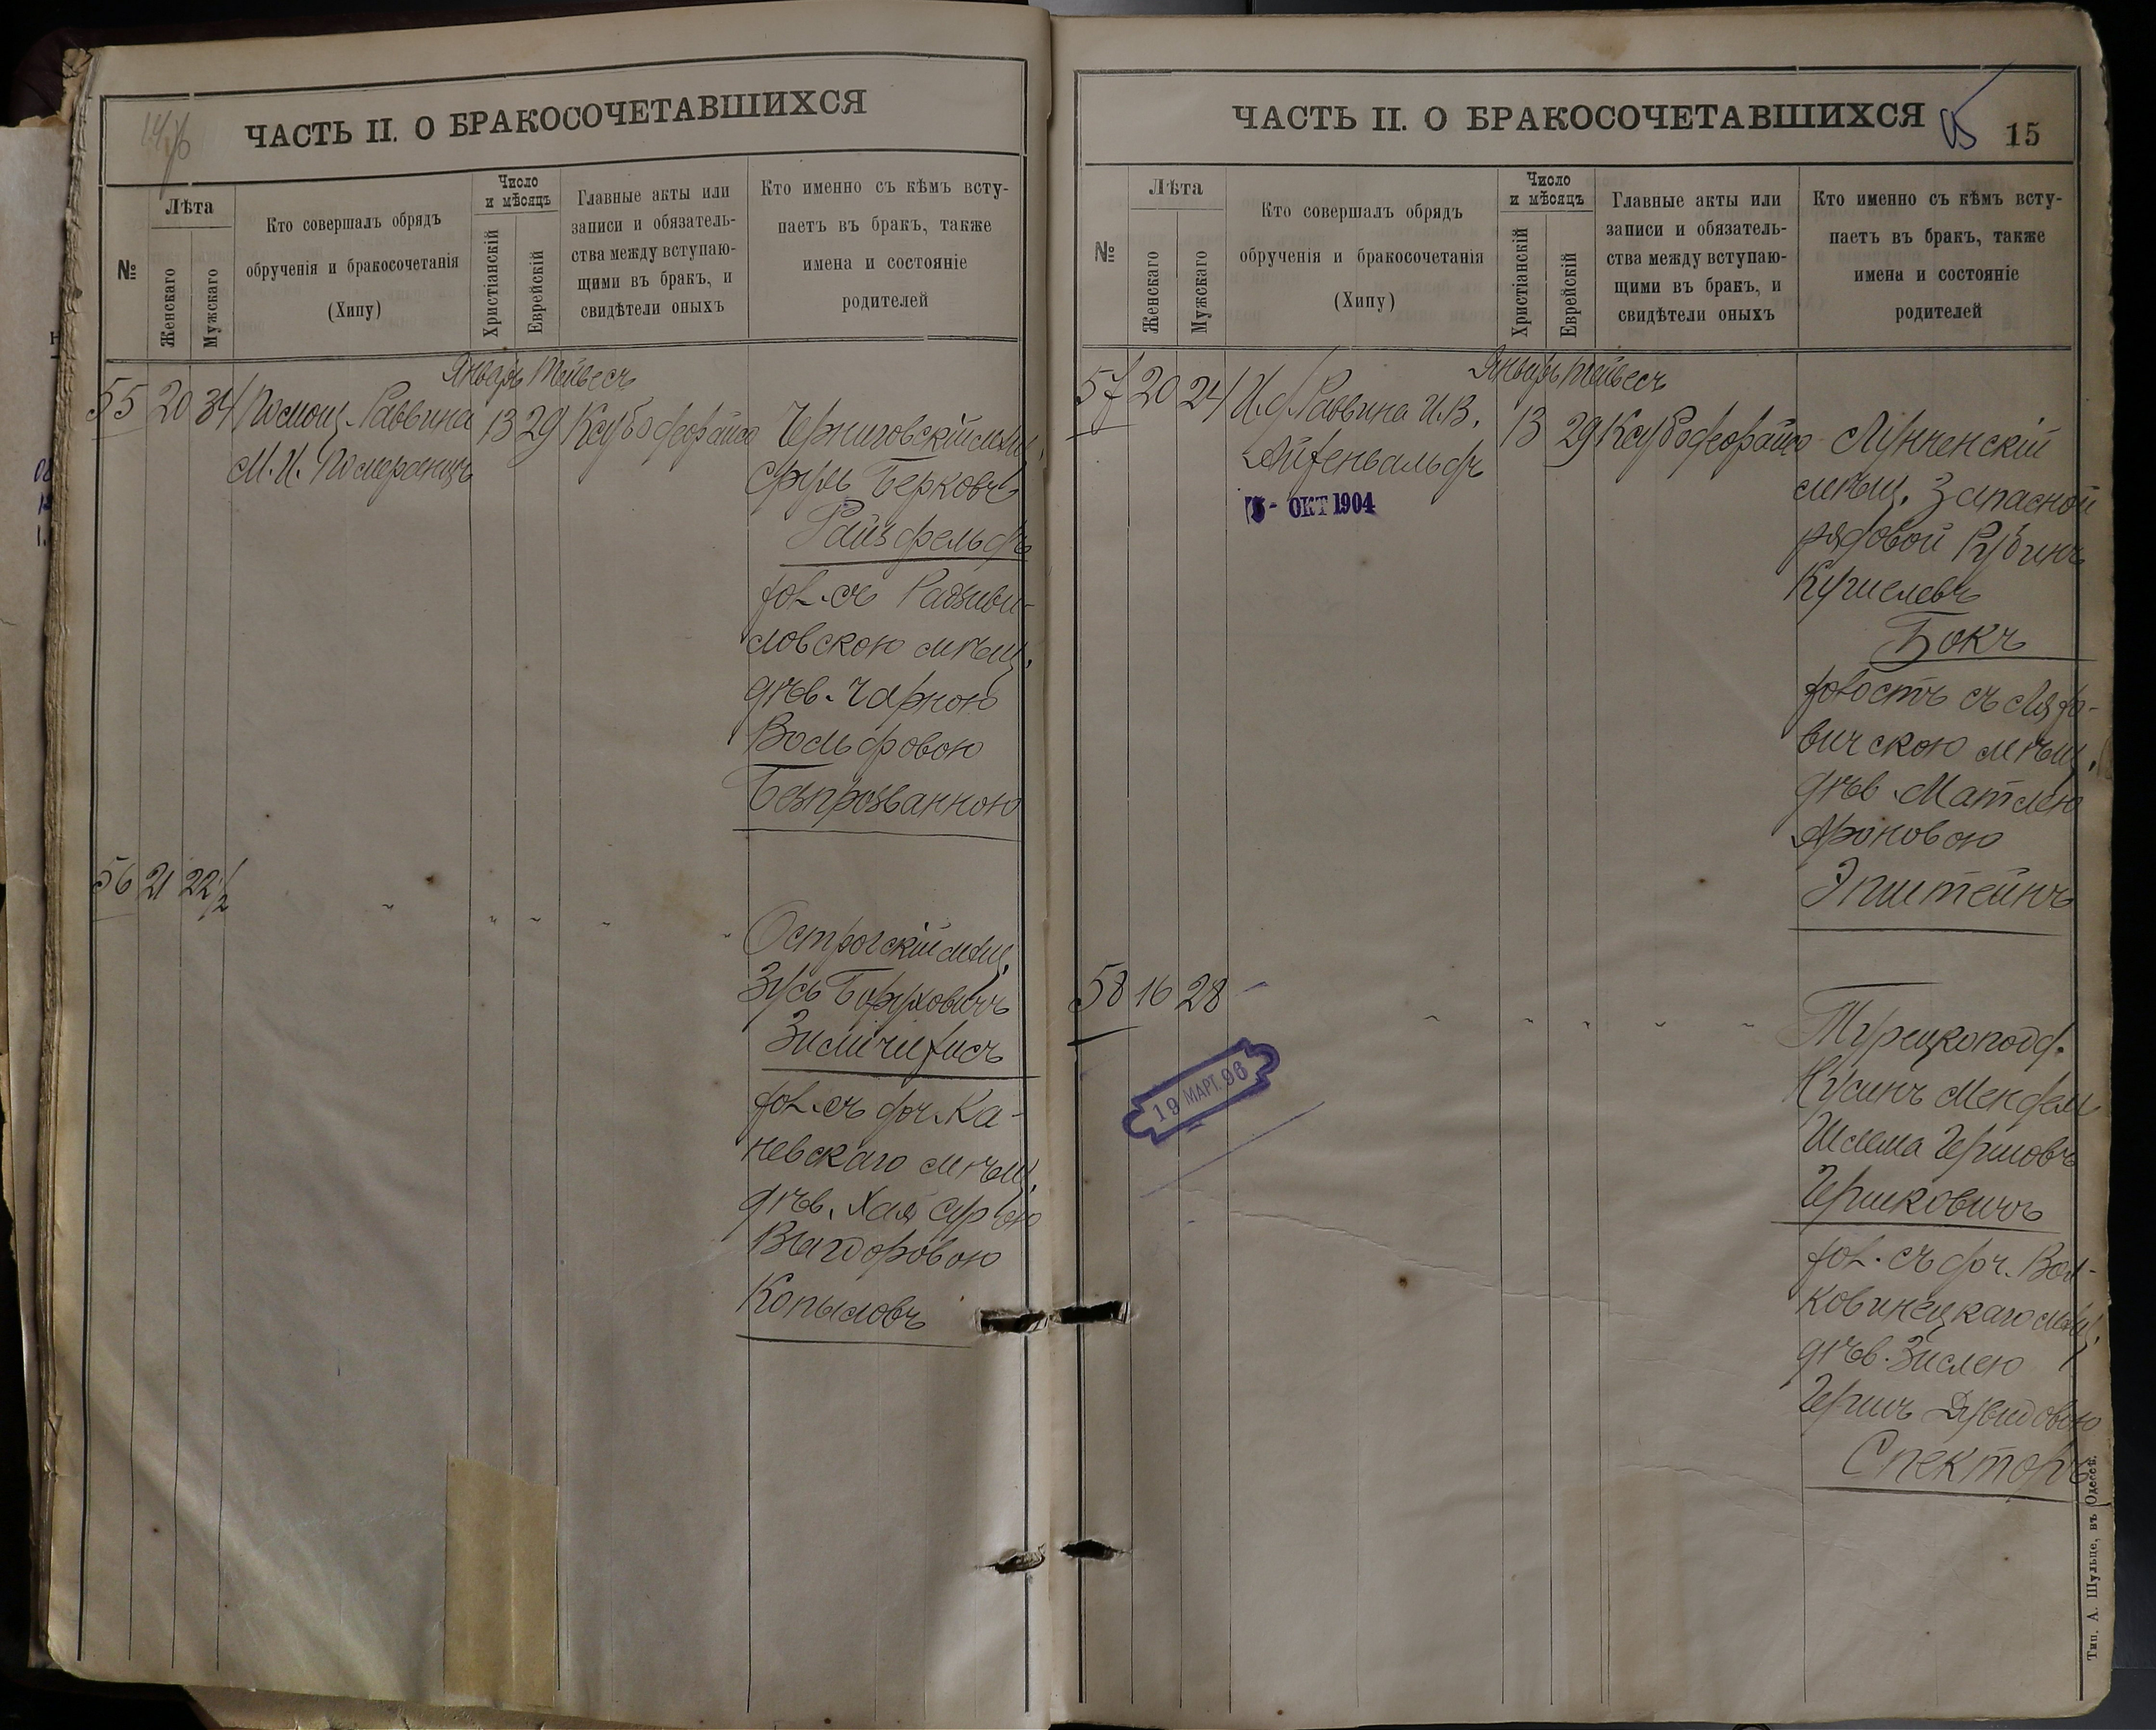 ЧАСТЬ II. О БРАКОСОЧЕТАВШИХСЯ
№
Лѣта
Женскаго
Мужскаго
Кто совершалъ обрядъ
обрученія и бракосочетанія
(Хипу)
Число
и мѣсяцъ
Христіанскій
Еврейскій
Главные акты или
записи и обязатель-
ства между вступаю-
щими въ бракъ, и
свидѣтели оныхъ
Кто именно съ кѣмъ всту-
паетъ въ бракъ, также
имена и состояніе
родителей
Январь Тейвесъ
55 20 34 Помощ. Раввина 13 29
М. И. Померанцъ
Черниговскій мѣщ.
Сруль Берковъ
Райзфельдъ
хол. съ Радзиви-
ловскою мѣщ.
дѣв. Чарною
Вольфовою
Безпрозванною
56 21 22 1/2
Острогскій мѣщ.
Зусь Боруховичъ
хол. съ доч. Ка-
невскаго мѣщ.
дѣв. Хая Сурою
Вигдоровою
Копыловъ
ЧАСТЬ II. О БРАКОСОЧЕТАВШИХСЯ
15
15
№
Лѣта
Женскаго
Мужскаго
Кто совершалъ обрядъ
обрученія и бракосочетанія
(Хипу)
Число
и мѣсяцъ
Христіанскій
Еврейскій
Главные акты или
записи и обязатель-
ства между вступаю-
щими въ бракъ, и
свидѣтели оныхъ
Кто именно съ кѣмъ всту-
паетъ въ бракъ, также
имена и состояніе
родителей
Январь Тейвесъ
57 20 24 И. д. Раввина И. В. 13 29
Айзенвальдъ
ОКТ 1904
мѣщ. Запасной
рядовой Рубинъ
Кушелевъ
Бокъ
холостъ съ Ляхо-
вичскою мѣщ.
дѣв. Матлею
Ароновою
Эпштейнъ
58 16 28
19 МАРТ. 96
Турецкопод.
Нусинъ Мендель
Шлема Гершовъ
Гершковичъ
хол. съ доч. Вол-
ковинецкаго мѣщ.
дѣв. Зислею
Гершъ Дувидовою
Спекторъ
Тип. А. Шульце, въ Одессѣ.